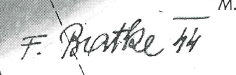 M.
F. Bratke 44